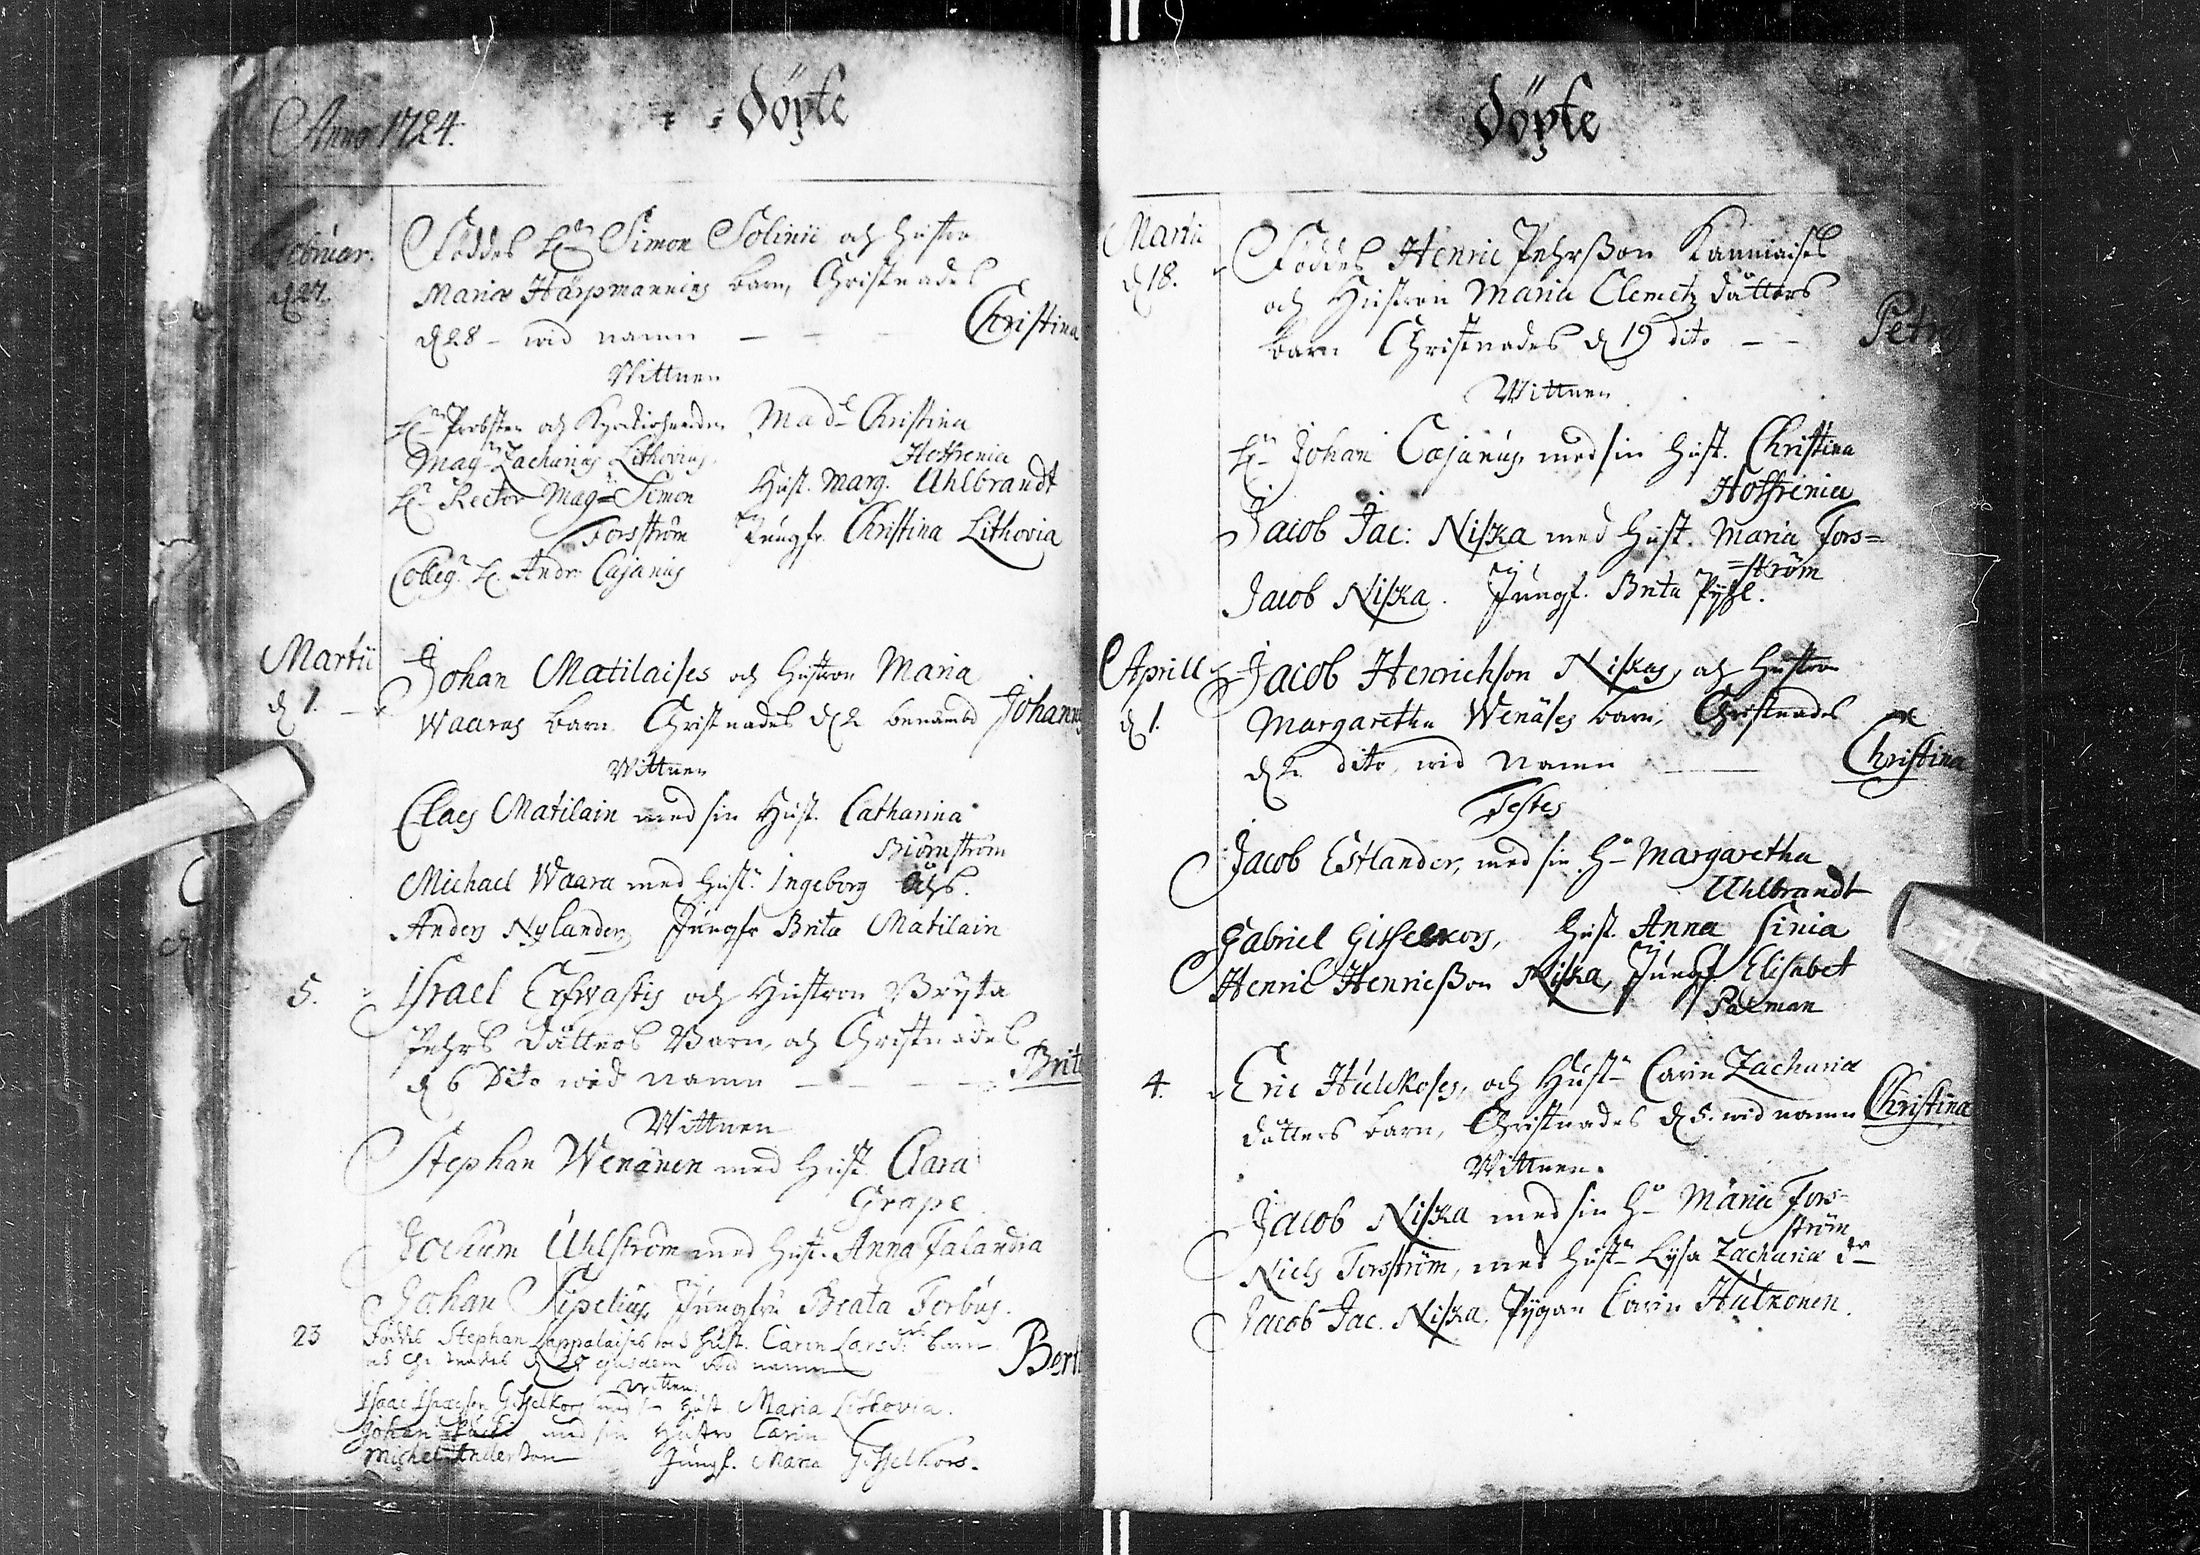 Anno 1724.
Döpte
Februar.
d 27.
Föddes Hr Simon Solinii och hustro
Mariæ Harpmannies barn, Christnades
d 28 - wid namn - - Christina
Wittnen
Hr Probsten och Kyrckioherden Mad. Christina
Mag. Zacharias Lithovius. Hoffrenia
Hr Rector Mag. Simon Hust. Marg. Uhlbrandt
Forsström Jungfr. Christina Lithovia
Colleg. H. Andr. Cajanus
Martii
d 1. Johan Matilaises och hustron Maria
Waaras barn Christnades d 2 benämbd Johannes
Wittnen
Claes Matilain med sin Hust. Catharina
Biörnström
Michael Waara med Hust. Ingeborg
Anders Nylander, Jungfr Brita Matilain
5. Israel Erfwastis och Hustron Bryta
Pehrs dätters Barn, och Christnades
d 6 Dito wid namn - - - Brita
Wittnen
Stephan Wenänen med Hust. Clara
Grape
Jochum Uhlström med Hust. Anna Falandia
Johan Sipelius, Jungfru Beata Forbus.
23 Föddes Stephan Lappalaises och Hust. Carin Lars dr barn
och Christnades d 25 ejusdem wid namn
Witten.
Isaac Isacson Gisselkors med sin Hust. Maria Lithovia.
Johan med sin Hustro Carin
Michel Anderson Jungf. Maria Gisselkors.
Döpte
Martii
d 18. Föddes Henric Pehrßon Kauniaises
och Hustron Maria Clemetz dätters
barn Christnades d 19 dito - - Petrus
Wittnen
Hr Johan Cajanus, med sin Hust. Christina
Hoffrenia
Jacob Jac: Niska med Hust. Maria Fors=
=ström
Jacob Niska. Jungf. Brita Pyhl.
Aprill
d 1. Jacob Henrichson Niskas, och Hustron
Margaretha Wenäses barn, Christnades
d 2 dito, wid Namn - Christina
Testes
Jacob Estlander, med sin H. Margaretha
Uhlbrandt
Gabriel Gisselkors, Hust. Anna Sinia
Henric Henricßon Niska, Jungf. Elisabet
Palman
4. Eric Hulckoses, och Hust. Carin Zachariæ
dätters barn, Christnades d 5. wid namn Christina
Wittnen.
Jacob Niska med sin H. Maria Fors-
ström
Niels Forsström, med Hust. Lysa Zachariæ dr
Jacob Jac. Niska. Pygan Carin Hulkonen.